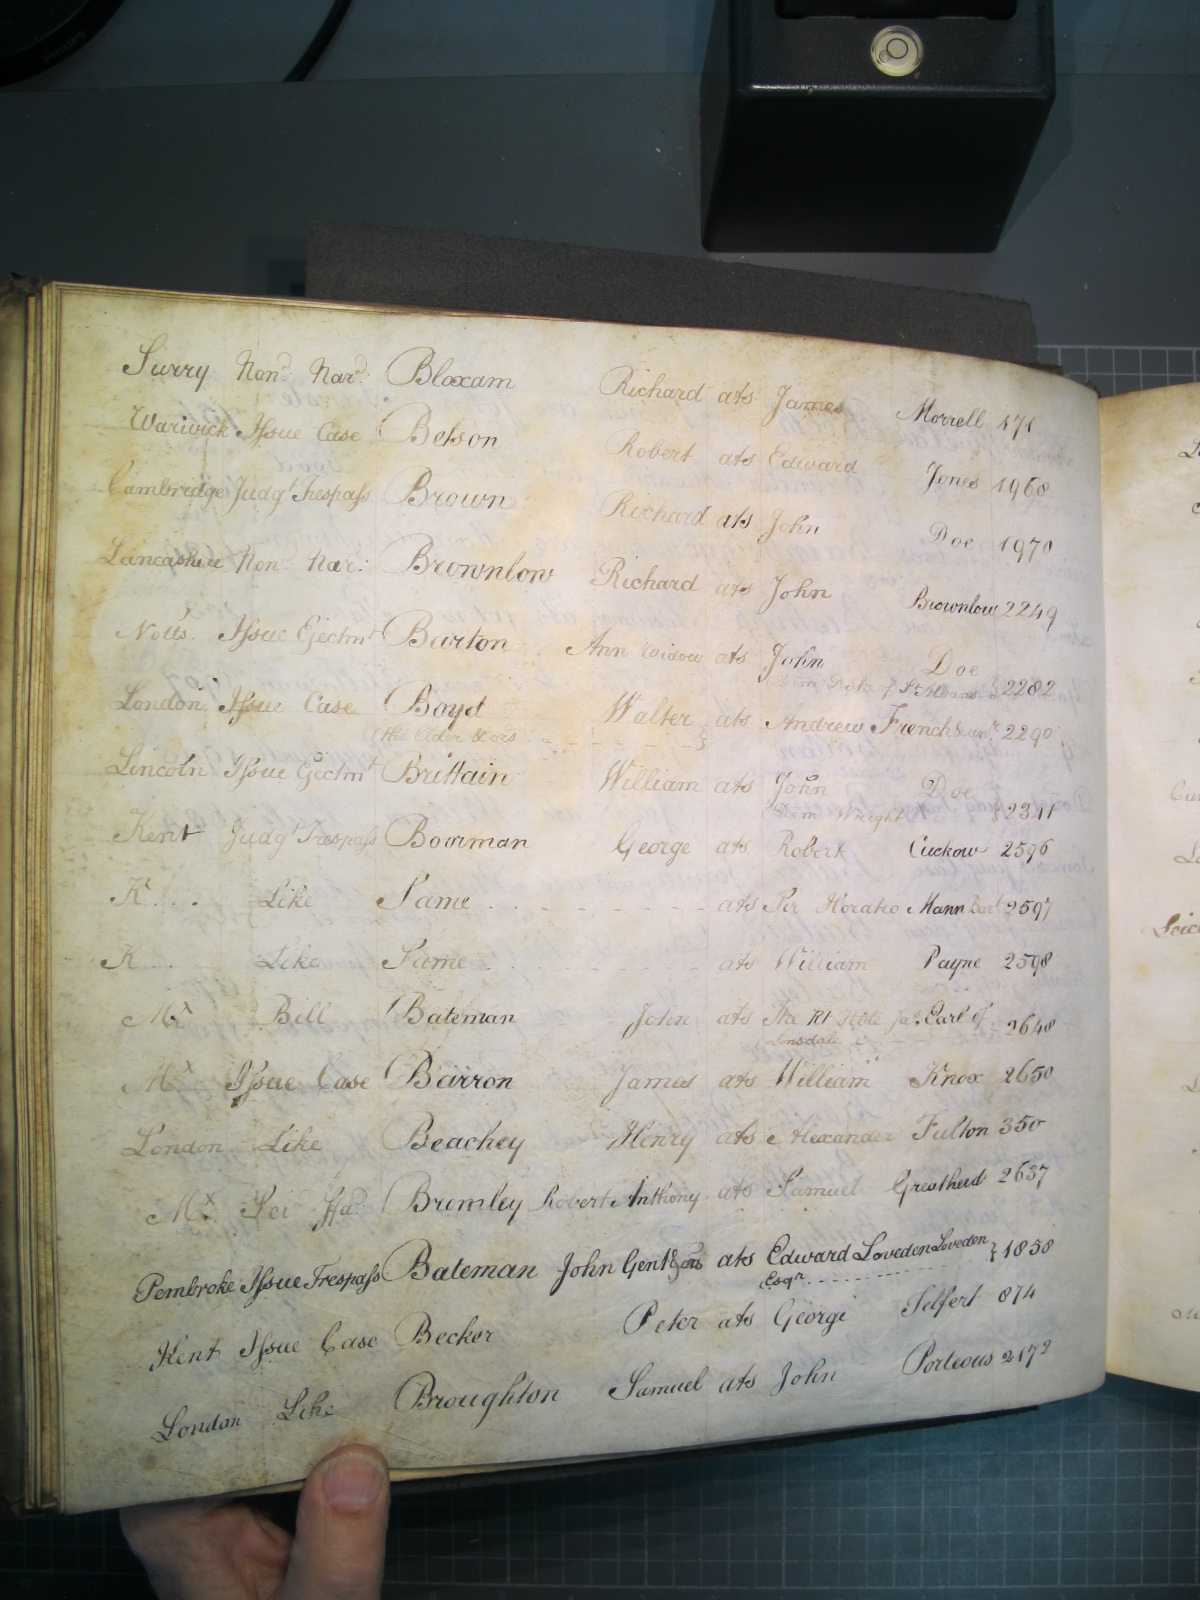 PHILIPS
Surry Non: Nar: Bloxam Richard ats James Morrell 171
Warwick Issue Case Betson Robert ats Edward Jones 1968
Cambridge Judgt Trespass Brown Richard ats John Doe 1970
Lancashire Non: Nar: Brownlow Richard ats John Brownlow 2249
Notts. Issue Ejectmt Barton Ann Widow ats John Doe
Dem Duke of St Albans 2282
London Issue Case Boyd Walter ats Andrew French & anr 2290
the Elder & ors
Lincoln Issue Ejectmt Brittain William ats John Doe
Dem Wright 2341
Kent Judgt Trespass Boorman George ats Robert Cuckow 2596
Kt... Like Same ats Sir Horatio Mann Bart 2597
K... Like Same ats William Payne 2598
Mx Bill Bateman John ats The Rt Hble Jas Earl of 2648
Lonsdale
Mx Issue Case Barron James ats William Knox 2650
London Like Beachey Henry ats Alexander Fulton 350
Mx Sci Fa: Bromley Robert Anthony ats Samuel Greathed 2637
Pembroke Issue Trespass Bateman John Gent & ors ats Edward Loveden Loveden 1858
Esqr.
Kent Issue Case Becker Peter ats George Selfert 874
London Like Broughton Samuel ats John Porteous 2172